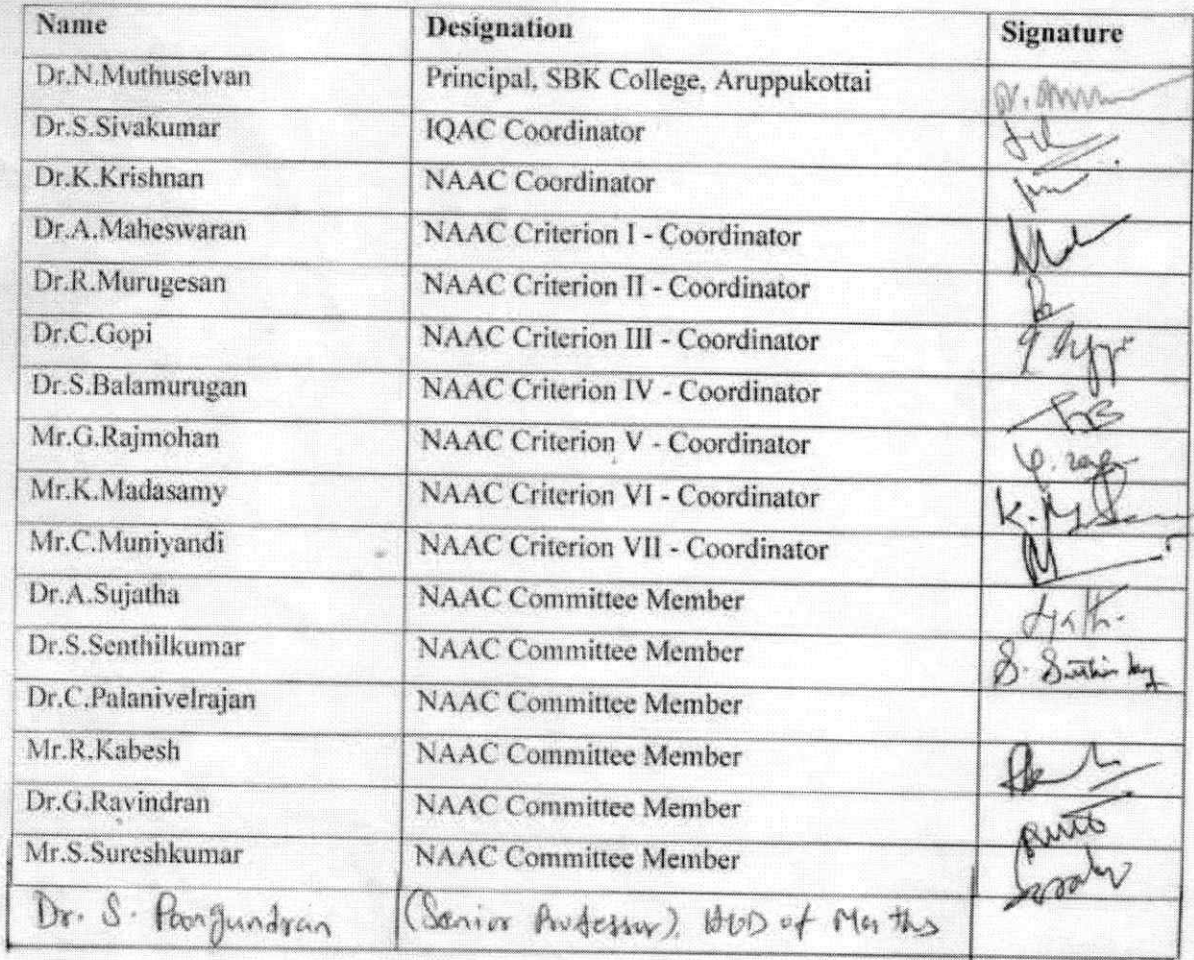 Name Designation Signature
Dr.N.Muthuselvan Principal, SBK College, Aruppukottai
Dr.S.Sivakumar IQAC Coordinator
Dr.K.Krishnan NAAC Coordinator
Dr.A.Maheswaran NAAC Criterion I - Coordinator
Dr.R.Murugesan NAAC Criterion II - Coordinator
Dr.C.Gopi NAAC Criterion III - Coordinator
Dr.S.Balamurugan NAAC Criterion IV - Coordinator
Mr.G.Rajmohan NAAC Criterion V - Coordinator
Mr.K.Madasamy NAAC Criterion VI - Coordinator
Mr.C.Muniyandi NAAC Criterion VII - Coordinator
Dr.A.Sujatha NAAC Committee Member
Dr.S.Senthilkumar NAAC Committee Member
Dr.C.Palanivelrajan NAAC Committee Member
Mr.R.Kabesh NAAC Committee Member
Dr.G.Ravindran NAAC Committee Member
Mr.S.Sureshkumar NAAC Committee Member
Dr. S. Poongundran (Senior Professor), HOD of Maths